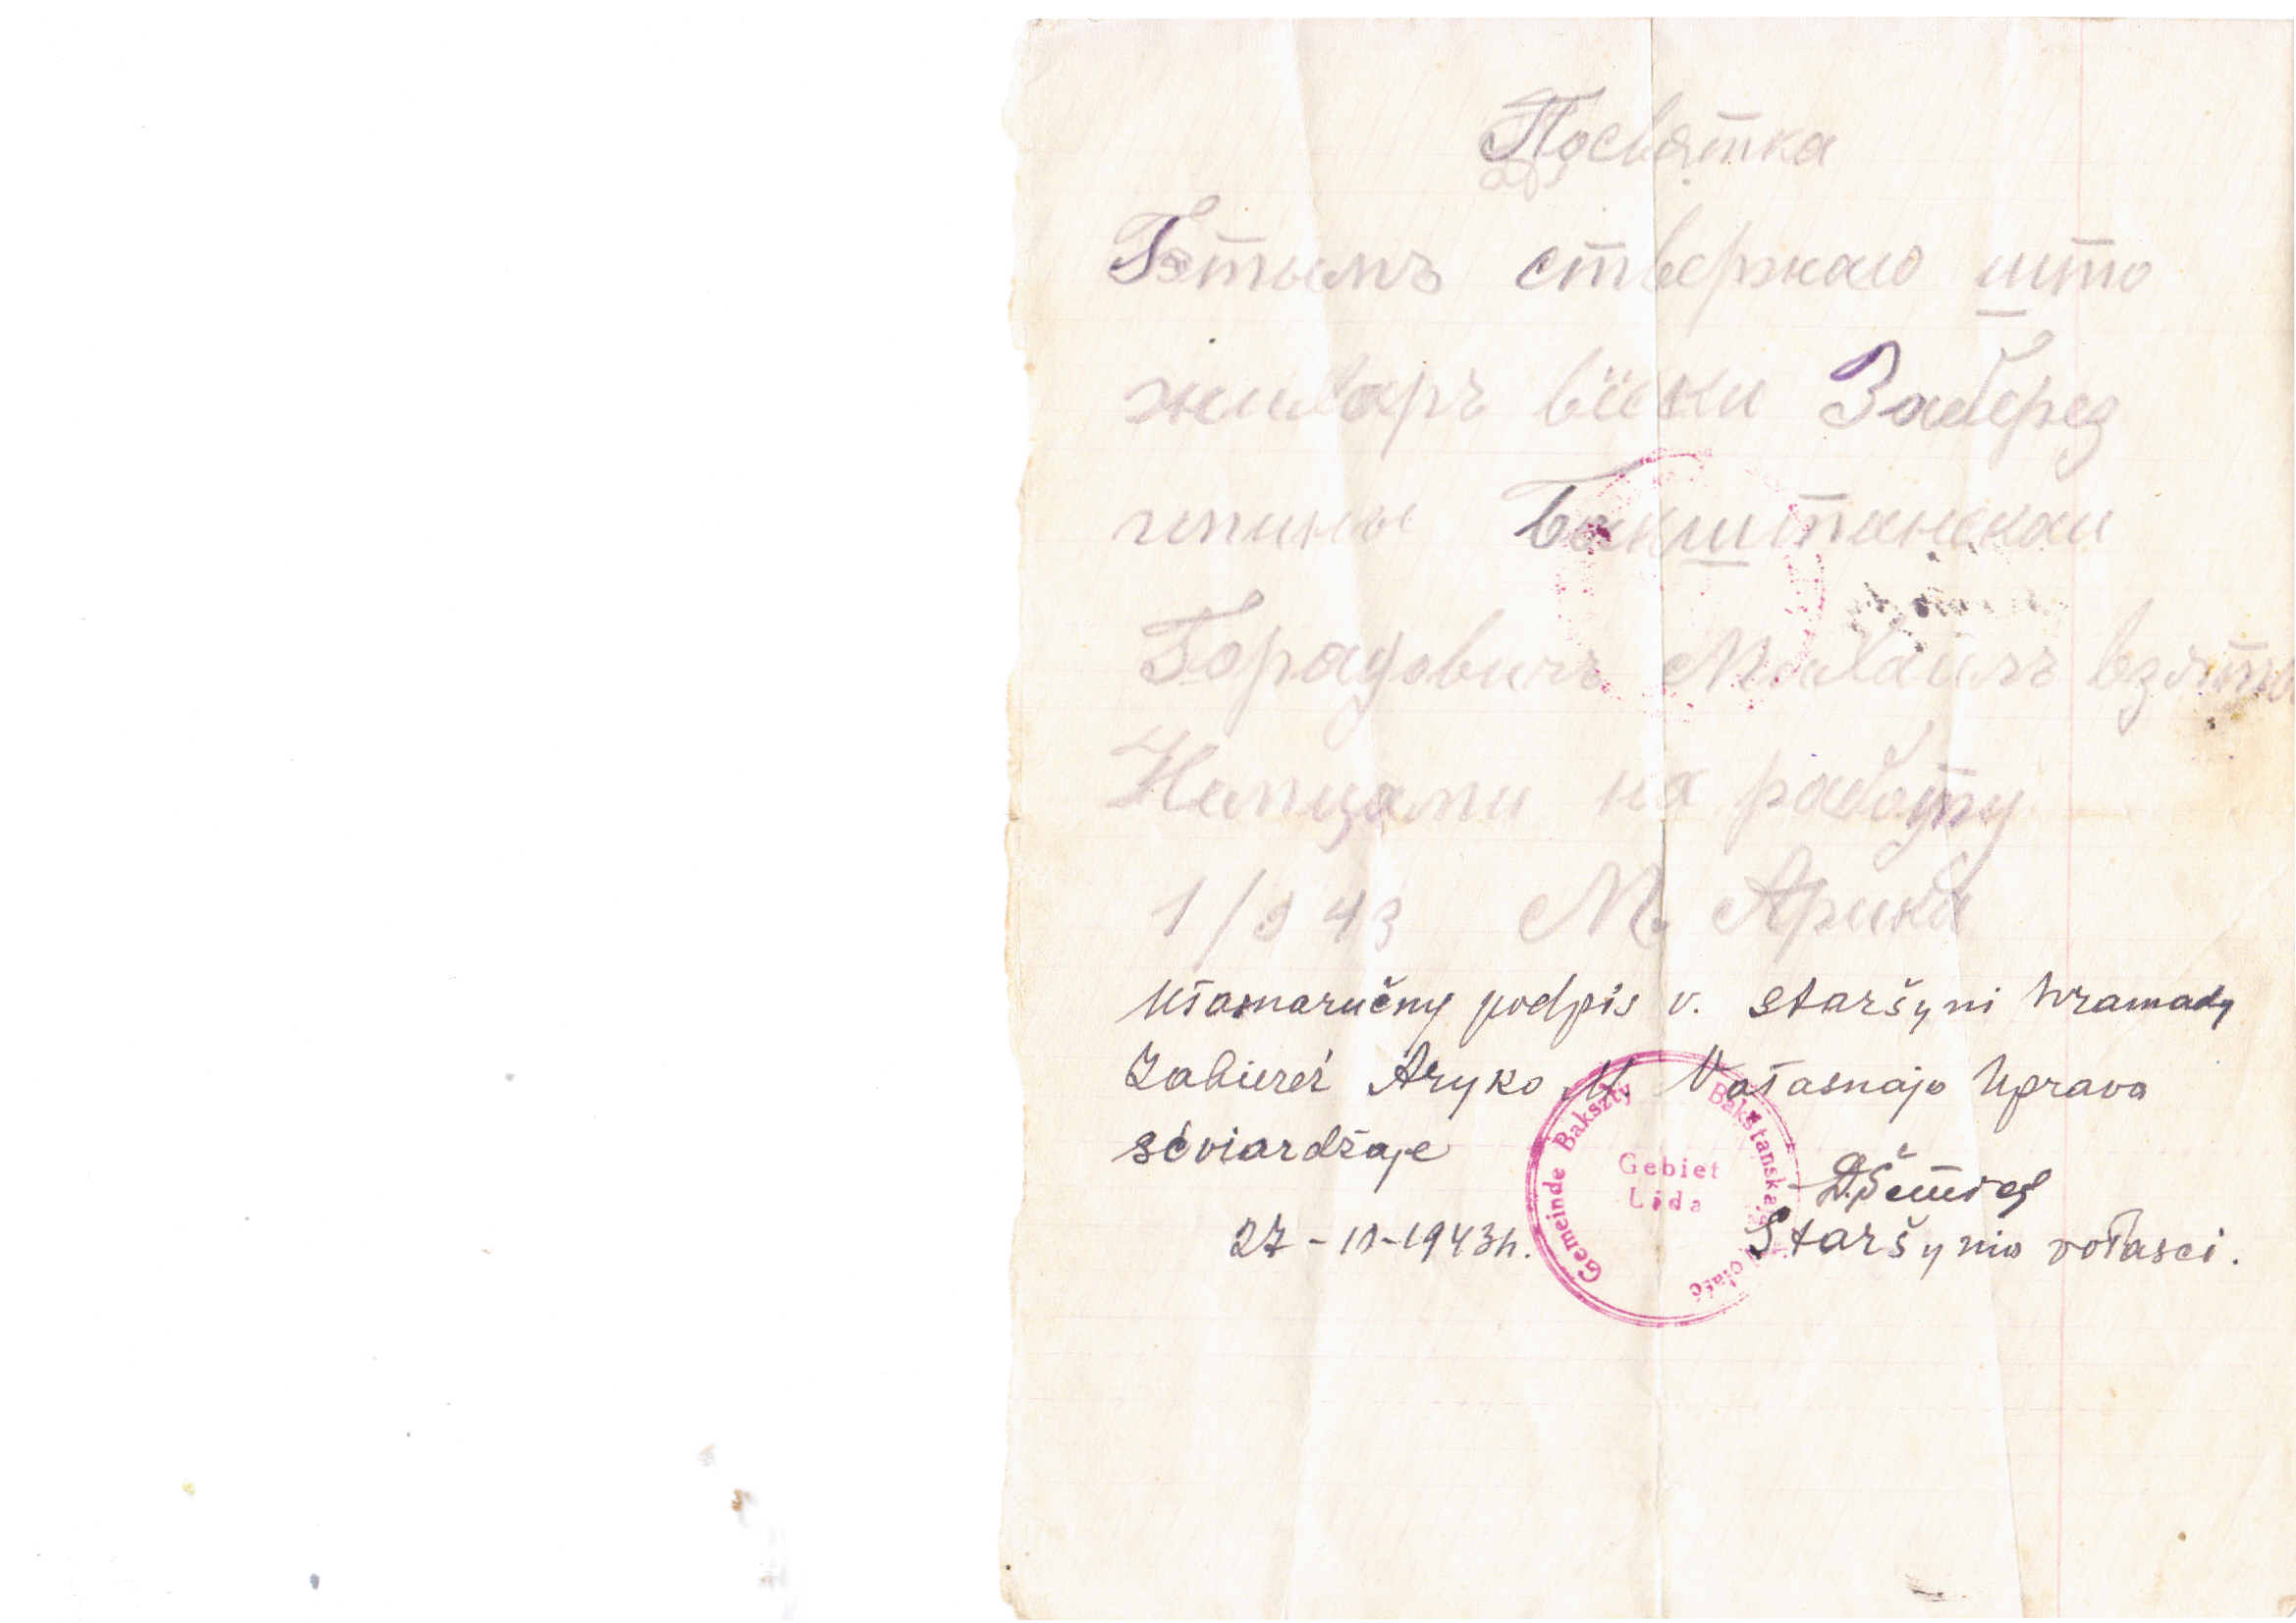 Посвятка
Гэтымъ ствержаю што
жихаръ вiоки Заберез
гмины Бакштанскаи
Борадовичъ Михаилъ взятъ
Немцами на работу
1/9 43 М. Арика
Ułamaručny podpis v. staršyni hramady
Zabiereź Aryko M. Vołasnaja Uprava
sćviardžaje
Gemeinde Bakszty
Bakštanskaja Vołaść
Gebiet
Lida
27-10-1943h.
Staršynia vołasci.